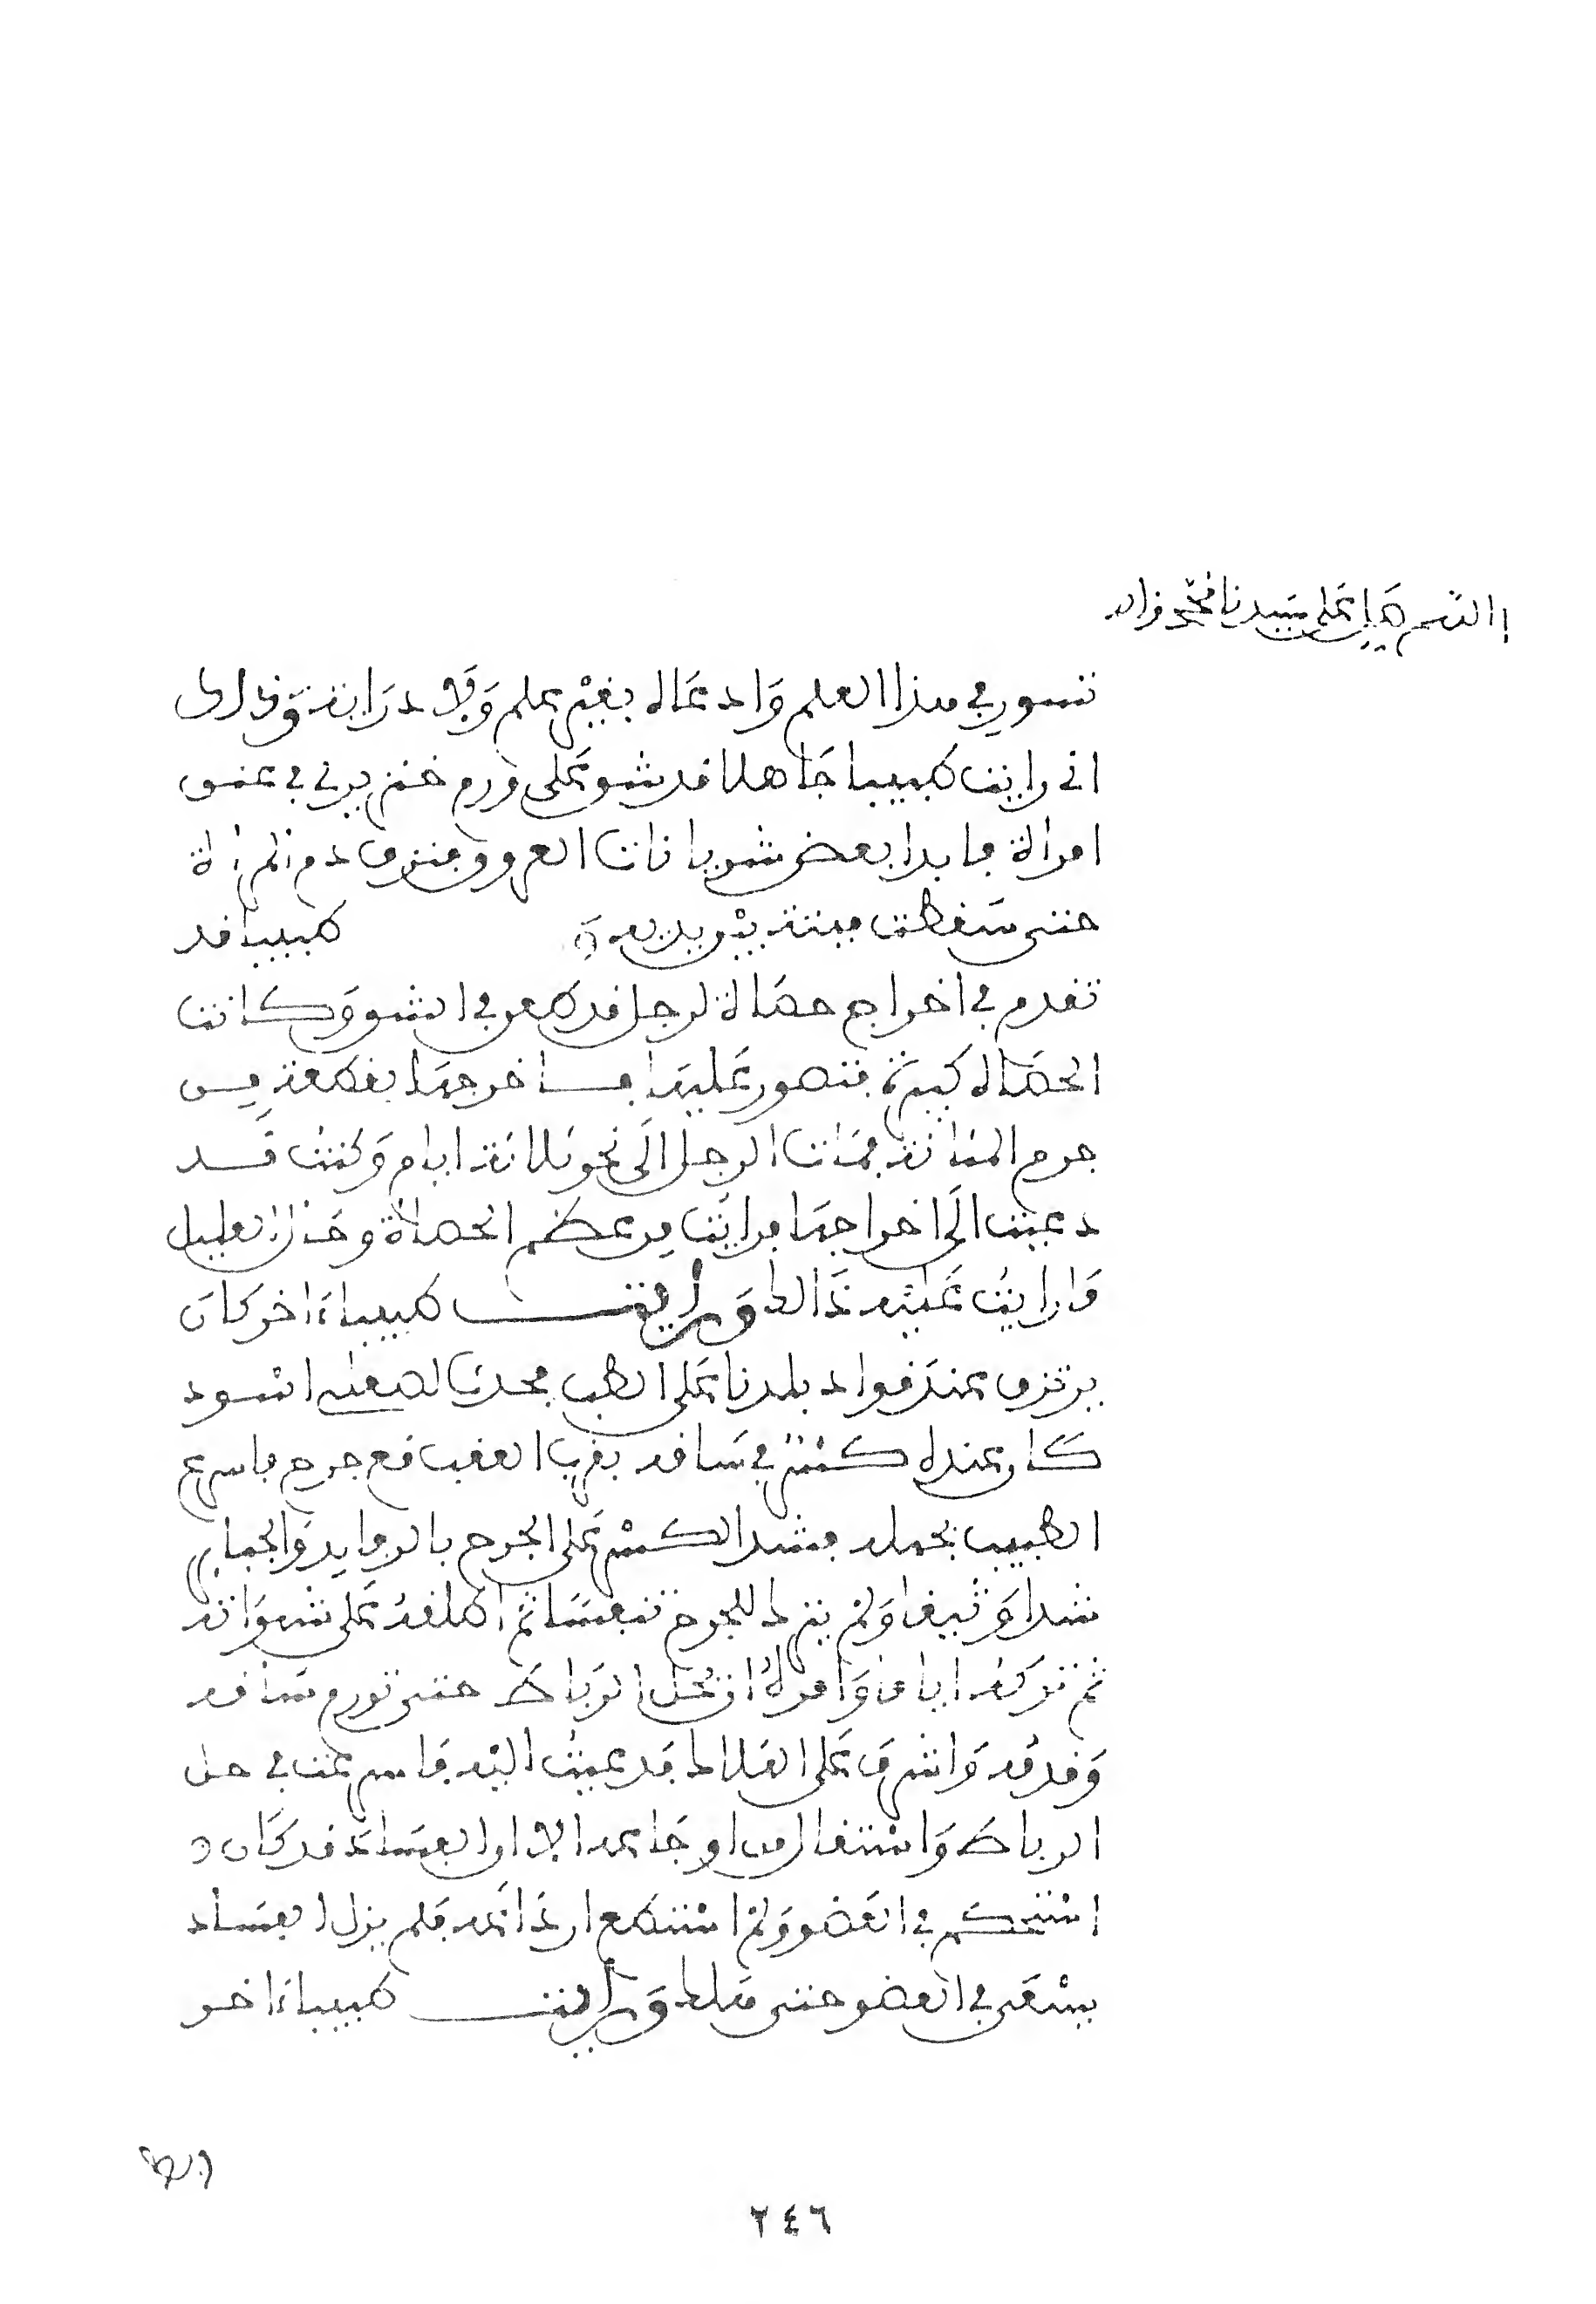 اللهم صل على سيدنا محمد واله
تسور في هذا العلم وادعاه بغير علم ولا دراية وذلك
اني رايت طبيبا جاهلا قد شق على ورم خنزيري في عنق
امراة فابدا بعض شريانات العروق فنزف دم المراة
حتى سقطت ميتة بين يديه طبيبا قد
تقدم في اخراج حصاة لرجل قد طعن في السن وكانت
الحصاة كبيرة فتهور عليها فاخرجها بقطعة من
جرم المثانة فمات الرجل الى نحو ثلاثة ايام وكنت قد
دعيت الى اخراجها فرايت من عظم الحصاة وحال العليل
ما رايت عليه ذالك ورايت طبيباء اخر كان
يرتزق عند قواد بلدنا على الطب فحدث اسود
كان عنده كسر في ساقه بقرب العقب مع جرح فاسرع
الطبيب بجهله فشد الكسر على الجرح بالرفايد والجباير
شدا وثيقا ولم يترك للجرح تنفسا ثم اطلقه على شهواته
ثم تركه اياما وامره ان لا يحل الرباط حتى تورم ساقه
وقدمه واشرف على الهلاك فدعيت اليه فاسرعت في حل
الرباط فاستقال من اوجاعه الا ان الفساد قد كان
استحكم في العضو ولم استطع ارداعه فلم يزل الفساد
يسعى في العضو حتى هلك ورايت طبيباء اخر
٢٤٦